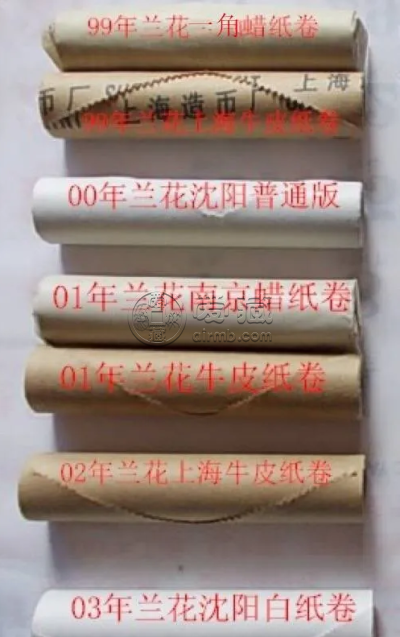 99年兰花一角蜡纸卷
币厂
上海
上海造币厂
99年兰花上海牛皮纸卷
00年兰花沈阳普通版
01年兰花南京蜡纸卷
airmb.com
01年兰花牛皮纸卷
02年兰花上海牛皮纸卷
03年兰花沈阳白纸卷